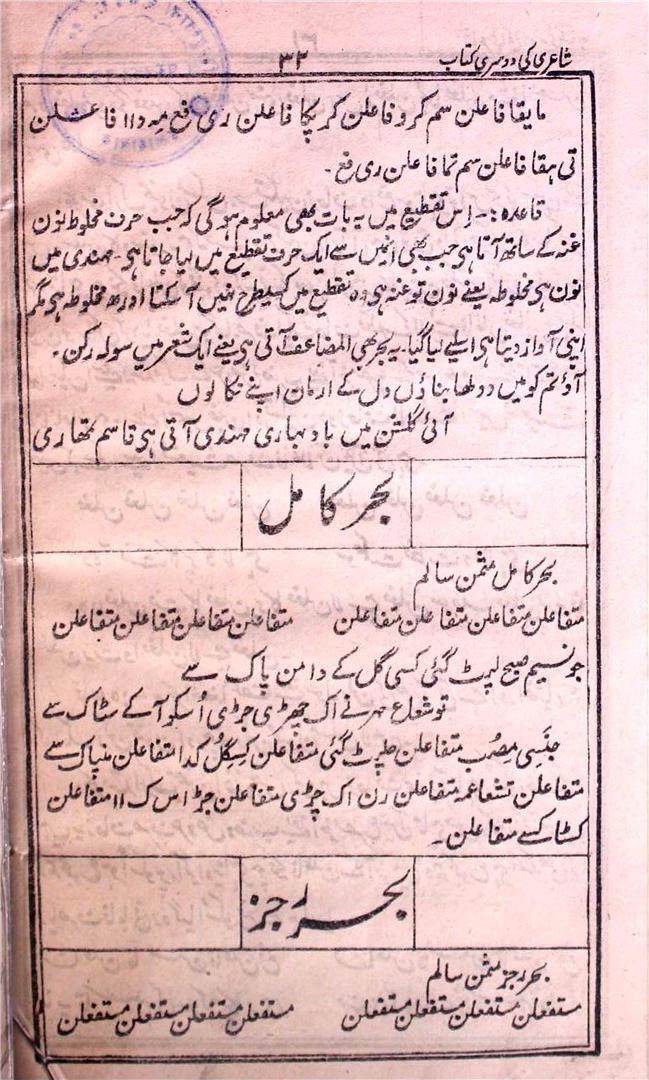 شاعری کی دوسری کتاب
۳۲
مایقا فاعلن سم کرو فاعلن کر پکا فاعلن ری فع مہ داا فاعلن
تی ہقا فاعلن سم تما فاعلن ری فع۔
قاعدہ:- اِس تقطیع میں یہ بات بھی معلوم ہوگی کہ جب حرف مخلوط نون
غنہ کے ساتھ آتا ہی جب بھی انمیں سے ایک حرف تقطیع میں لیا جاتا ہی۔ مہندی میں
نون ہی مخلوطہ یعنے نون تو غنہ ہی وہ تقطیع میں کسیطرح نہیں آ سکتا اور ھ مخلوطہ ہی مگر
اپنی آواز دیتا ہی اسلیے لیا گیا۔ یہ بحر بھی المضاعف آتی ہی یعنے ایک شعر میں سولہ رکن۔
آؤ تم کو میں دولھا بناؤں دل کے ارمان اپنے نکالوں
آئی گلشن میں باد بہاری مہندی آتی ہی قاسم تمھاری
بحر کامل
بحر کامل مثمن سالم
متفاعلن متفاعلن متفاعلن متفاعلن متفاعلن متفاعلن متفاعلن متفاعلن
جو نسیم صبح لپٹ گئی کسی گل کے دامن پاک سے
تو شعاع مہر نے اک چھڑی جڑی اُسکو آکے سٹاک سے
جنَسی مِصُب متفاعلن حلپٹ گئی متفاعلن کسِگُل کدا متفاعلن منپاک سے
متفاعلن تشعاعمہ متفاعلن رن اک چڑی متفاعلن جڑا س ک اا متفاعلن
کسٹا کسے متفاعلن۔
بحر رجز
بحر رجز مثمن سالم
مستفعلن مستفعلن مستفعلن مستفعلن مستفعلن مستفعلن مستفعلن مستفعلن